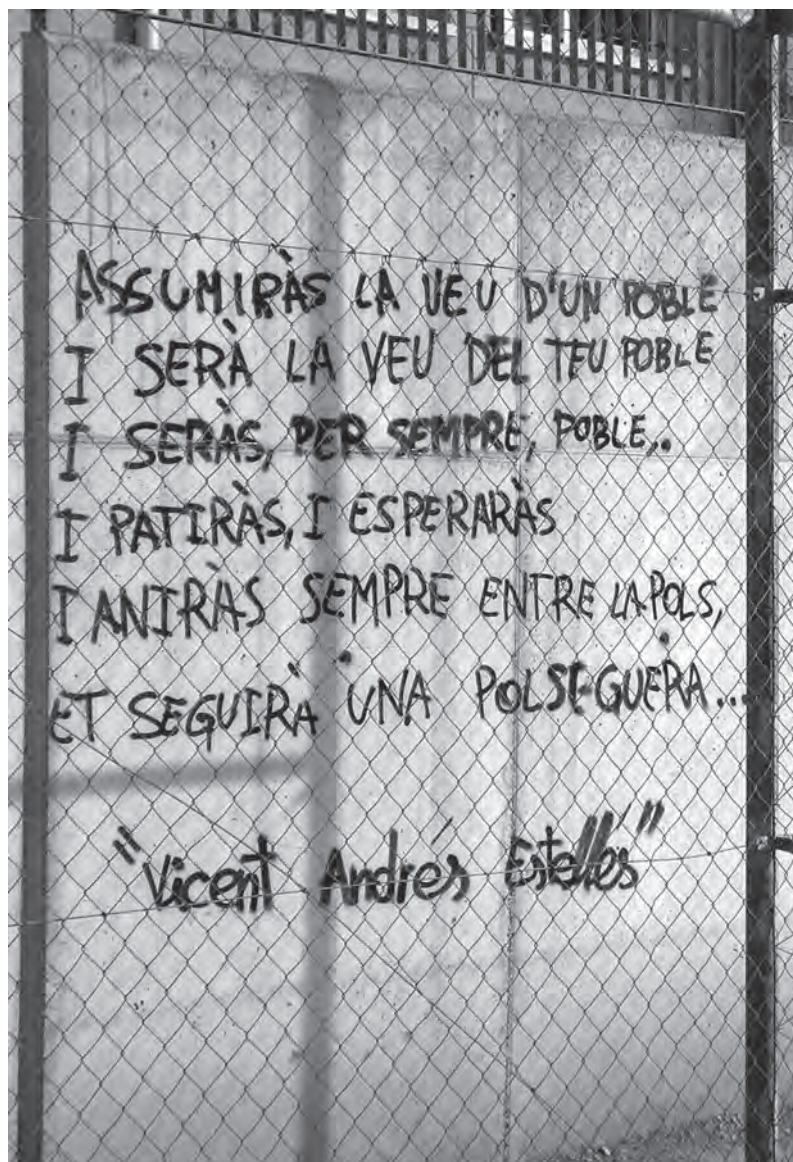 ASSUMIRÀS LA VEU D'UN POBLE
I SERÀ LA VEU DEL TEU POBLE
I SERÀS, PER SEMPRE, POBLE,..
I PATIRÀS, I ESPERARÀS
I ANIRÀS SEMPRE ENTRE LA POLS,
ET SEGUIRÀ UNA POLSEGUERA...
"Vicent Andrés Estellés"